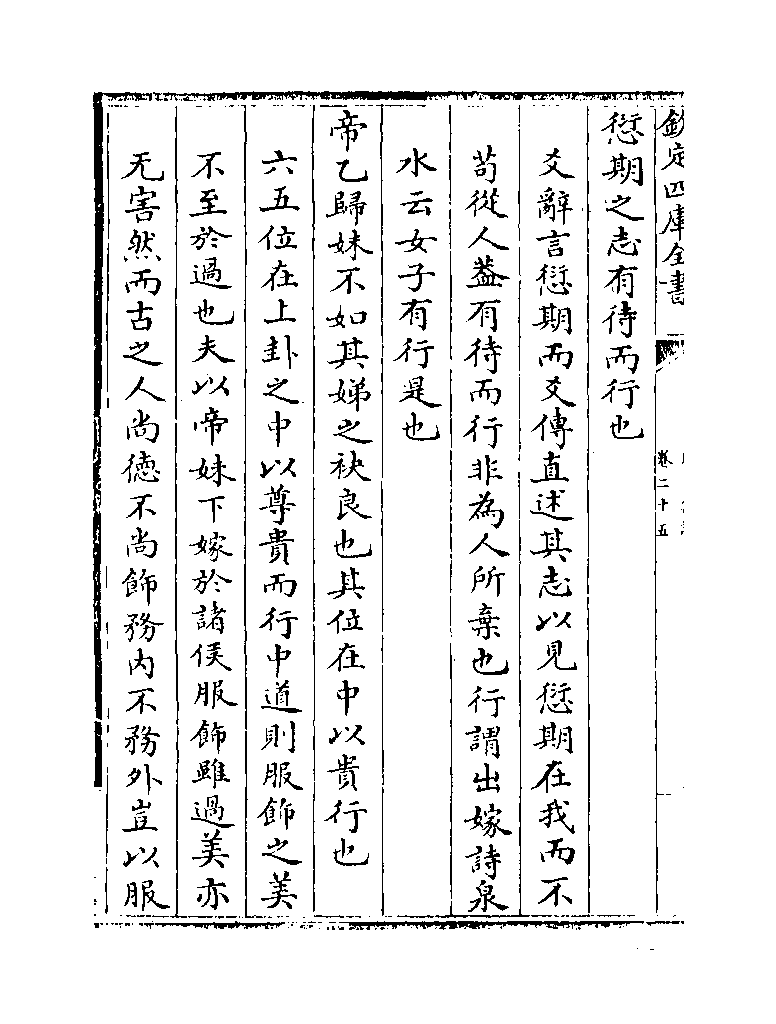 欽定四庫全書
卷二十五
愆期之志有待而行也
爻辭言愆期而爻傳直述其志以見愆期在我而不
苟從人葢有待而行非為人所棄也行謂出嫁詩泉
水云女子有行是也
帝乙歸妹不如其娣之袂良也其位在中以貴行也
六五位在上卦之中以尊貴而行中道則服飾之美
不至於過也夫以帝妹下嫁於諸侯服飾雖過美亦
无害然而古之人尚德不尚飾務内不務外豈以服